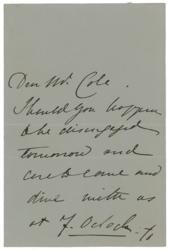 Dear Mr. Cole.
Should you happen
to be disengaged
tomorrow and
care to come and
dine with us
at 7. Oclock.